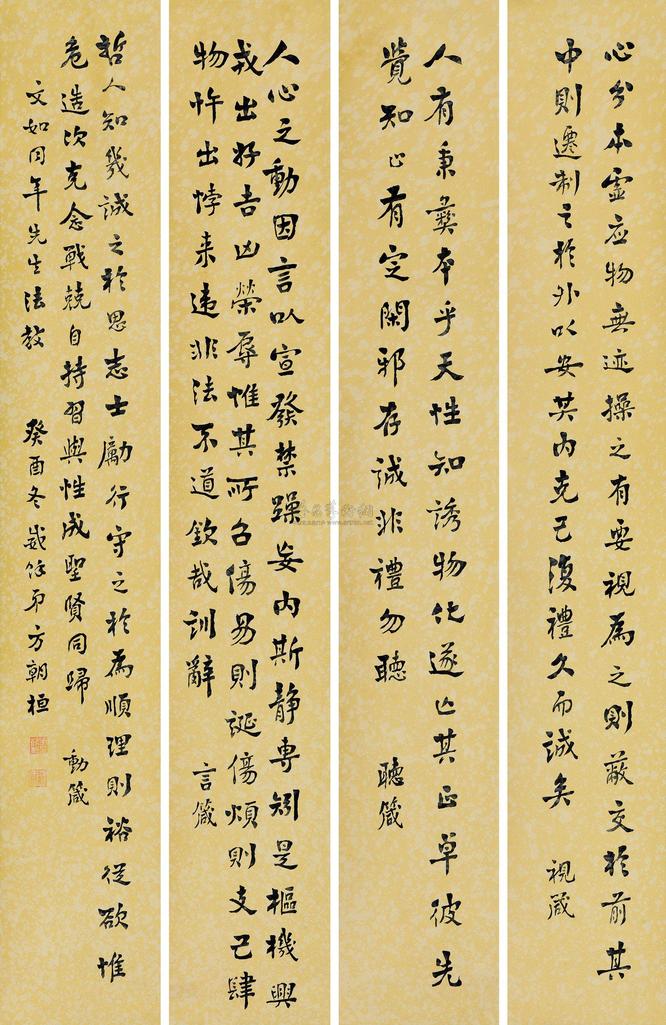 心兮本虛应物無迹操之有要視為之則蔽交於前其
中則遷制之於外以安其内克己復禮久而誠矣 視箴
人有秉彝本乎天性知誘物化遂亡其正卓彼先
覺知止有定閑邪存誠非禮勿聽 聽箴
人心之動因言以宣發禁躁妄内斯静專矧是樞機興
戎出好吉凶榮辱惟其所召傷易則誕傷煩則支己肆
物忤出悖来違非法不道欽哉訓辭 言箴
哲人知幾誠之於思志士勵行守之於為順理則裕從欲惟
危造次克念戰兢自持習與性成聖賢同歸 動箴
文如同年先生法教 癸酉冬歲除弟方朝桓